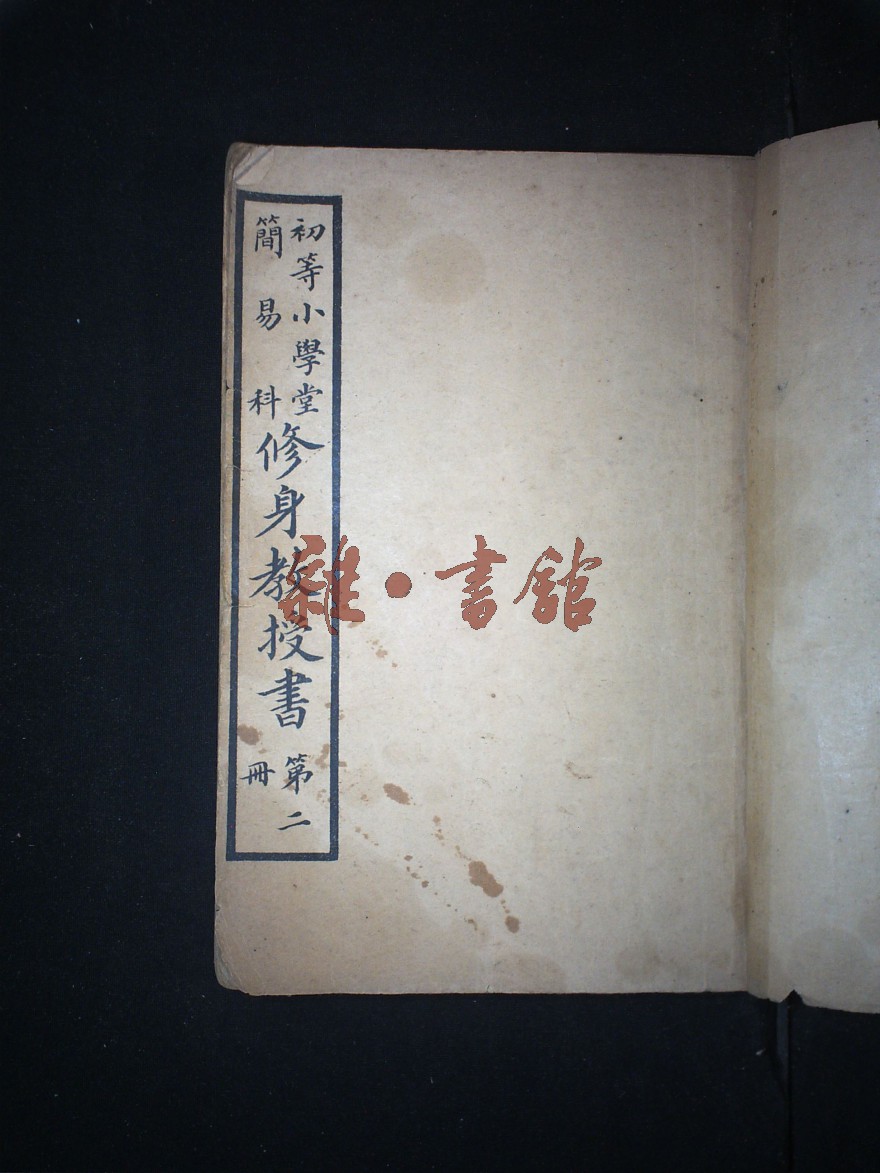 初等小學堂
簡易科
修身教授書
第二
冊
雜·書館